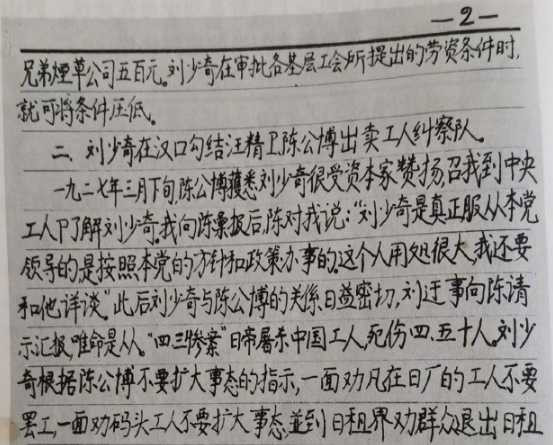 —2—
兄弟烟草公司五百元。刘少奇在审批各基层工会所提出的劳资条件时,
就可将条件压低。
二、刘少奇在汉口勾结汪精卫陈公博出卖工人纠察队。
一九二七年三月下旬,陈公博获悉刘少奇很受资本家赞扬,召我到中央
工人P了解刘少奇。我向陈彙报后,陈对我说:“刘少奇是真正服从本党
领导的是按照本党的方针和政策办事的,这个人用处很大,我还要
和他详谈”此后刘少奇与陈公博的关係日益密切,刘迂事向陈请
示汇报,唯命是从。“四·三惨案”日帝屠杀中国工人,死伤四、五十人。刘少
奇根据陈公博不要扩大事态的指示,一面劝凡在日厂的工人不要
罢工,一面劝码头工人不要扩大事态,並到日租界劝群众退出日租